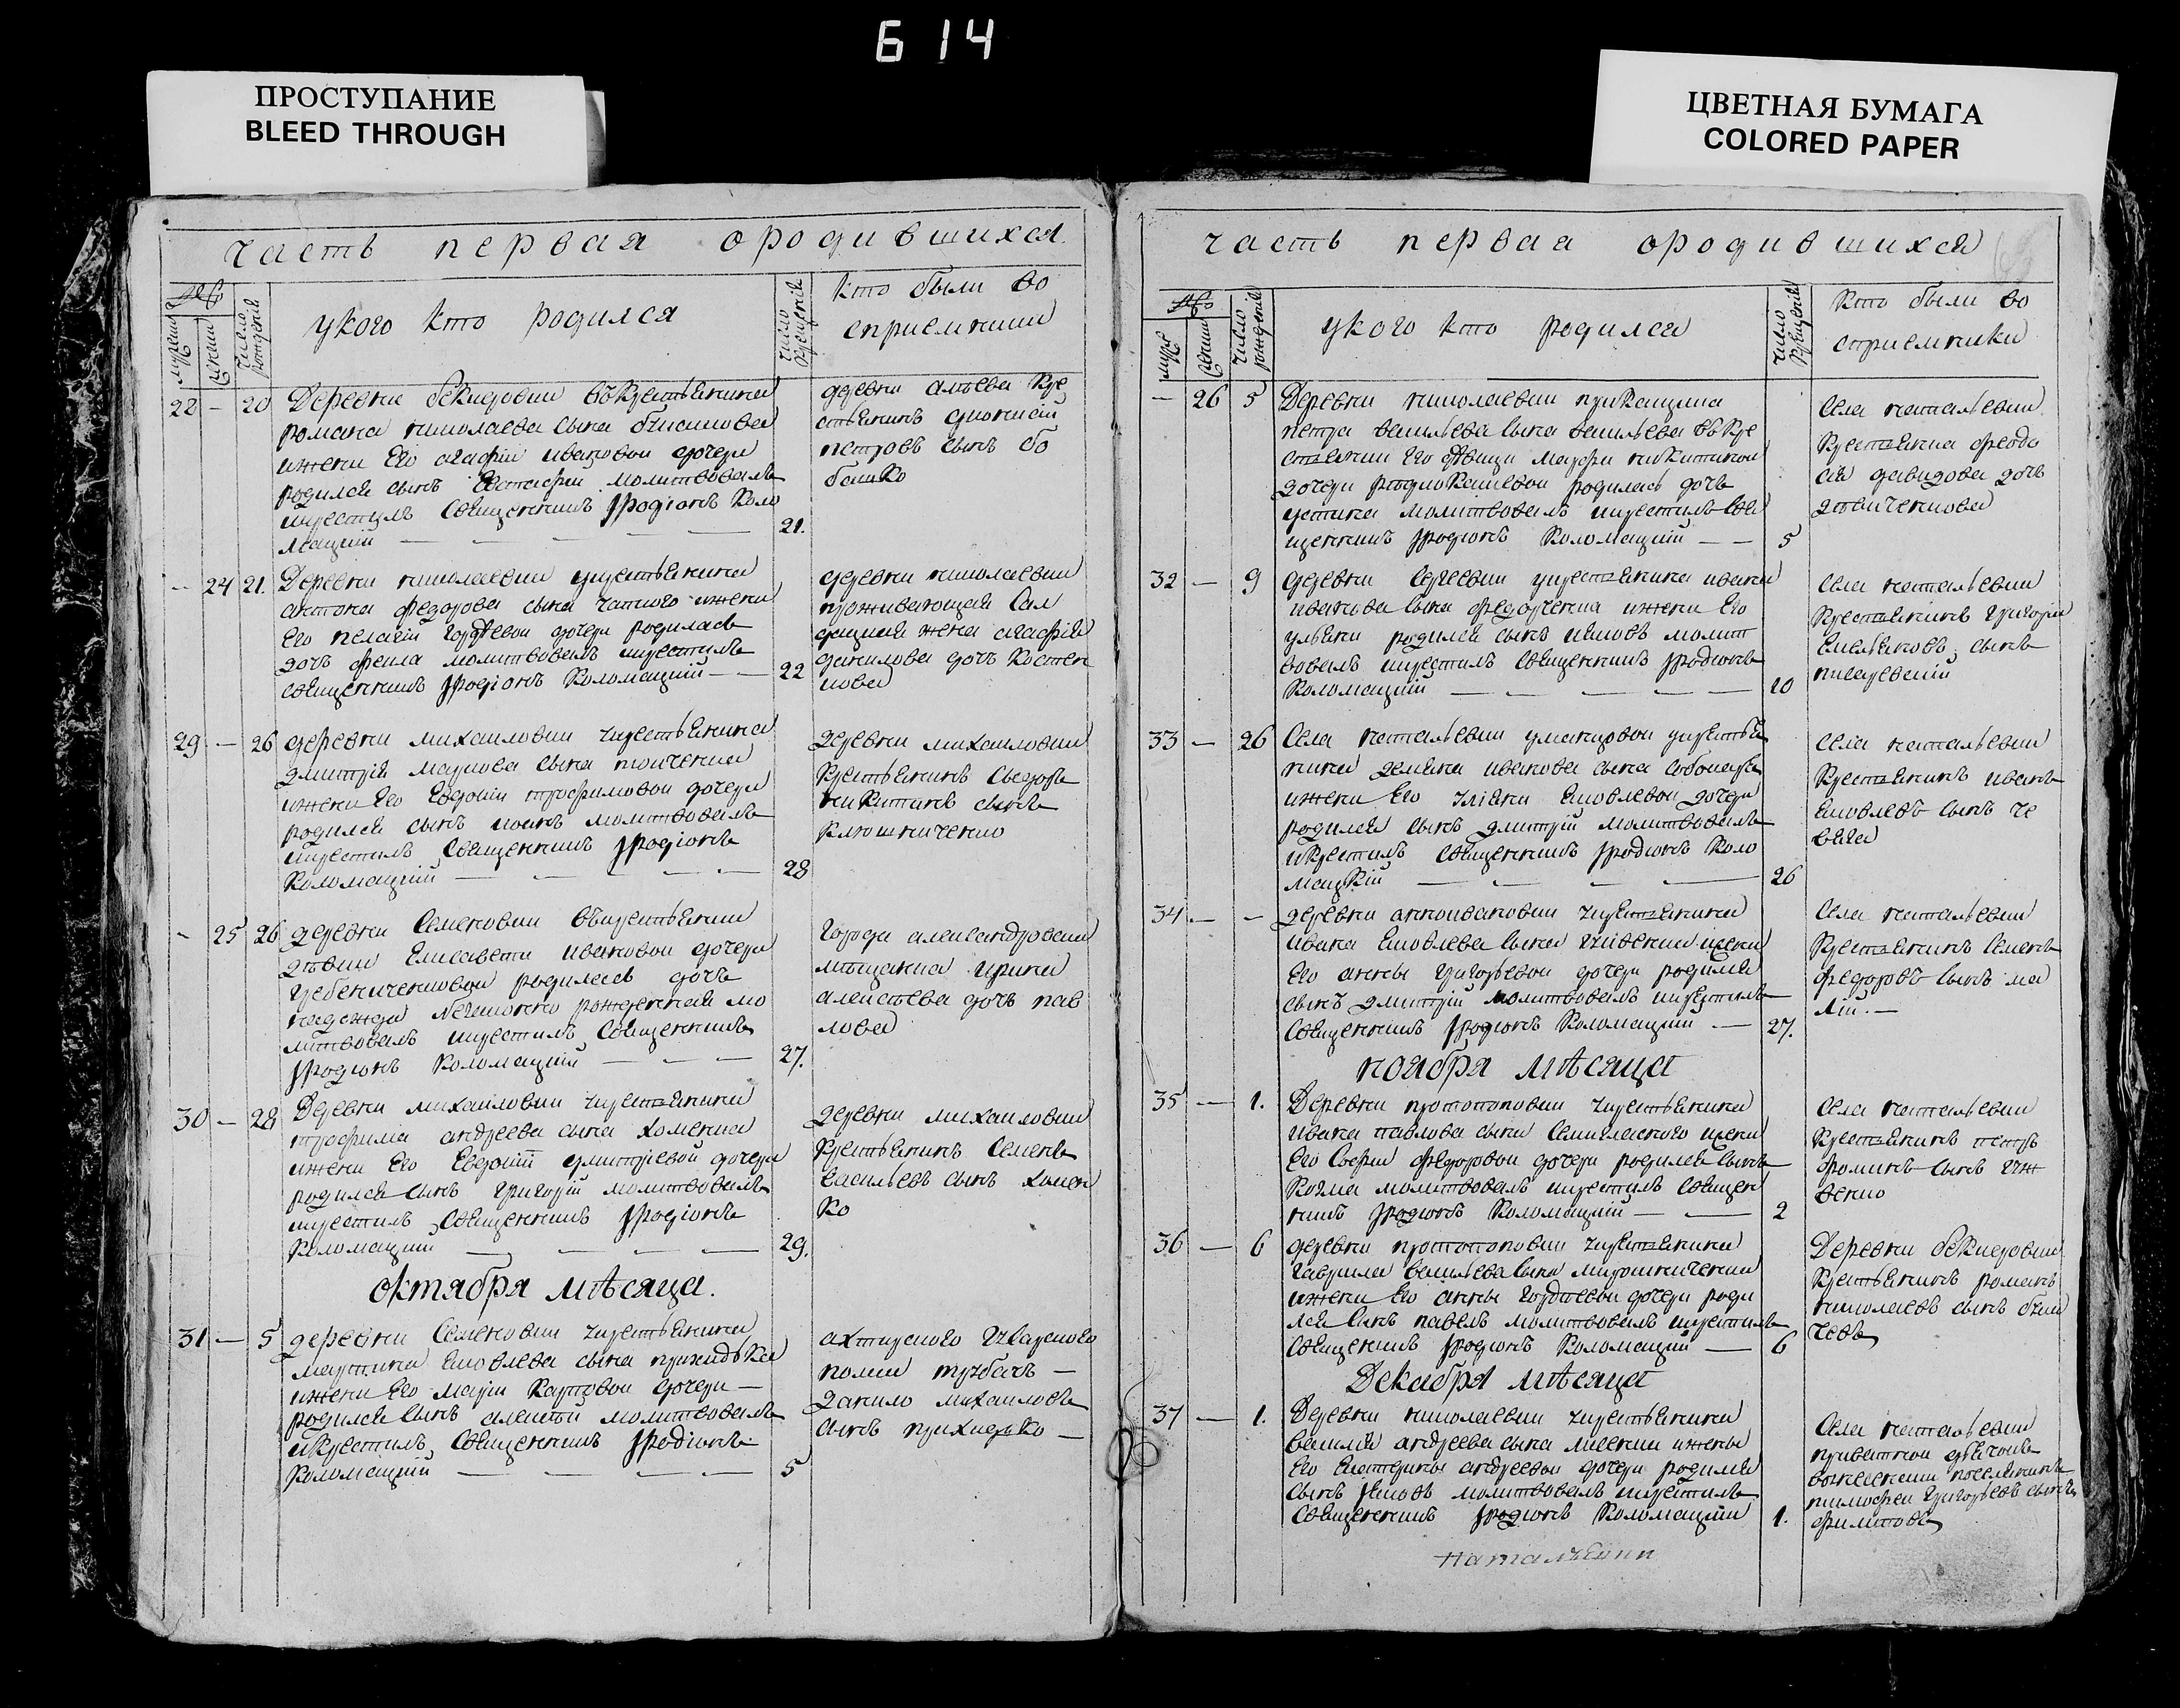 614
ПРОСТУПАНИЕ
BLEED THROUGH
ЦВЕТНАЯ БУМАГА
COLORED PAPER
часть первая ородившихся
число рождения
укого кто родился
число крещения
кто были во
сприемники
28 — 20
романа николаева сына
ижены его агафии ивановой дочери
родился сынъ молитвовалъ
икрестилъ священникъ Iродіонъ Коло
мацкій 21.
деревни кре
стьянинъ
петровъ сынъ бо
башко
— 24 21. Деревни николаевки укрестьянина
антона федорова сына ижены
его пелагіи гордѣевой дочери родилась
дочь феkла молитвовалъ икрестилъ
священникъ Iродіонъ Коломацкій 22
деревни николаевки
проживающая сол
дацкая жена агафія
данилова дочь костен
кова
29 — 26 деревни михаиловки укрестьянина
дмитрія маркова сына
ижены его евдокіи трофимовой дочери
родился сынъ молитвовалъ
икрестилъ священникъ Iродіонъ
Коломацкій 28
деревни михаиловки
крестьянинъ
никитинъ сынъ
ключниченко
— 25 26 деревни Семеновки
дѣвки Елисавети ивановой дочери
гребениченковой родилась дочь
надежда незаконно рожденная мо
литвовалъ икрестилъ священникъ
Iродіонъ Коломацкій 27.
города александровска
мещанка ирина
алексѣева дочь пав
лова
30 — 28 Деревни михаиловки укрестьянина
трофима андреева сына хоменка
ижены его Евдокіи дмитріевой дочери
родился сынъ григорій молитвовалъ
икрестилъ священникъ Iродіонъ
Коломацкій 29.
деревни михаиловки
крестьянинъ Семенъ
васильевъ сынъ хомен
ко
октября мѣсяца.
31 — 5 деревни Семеновки укрестьянина
мартина яковлева сына прихидька
ижены его маріи карповой дочери
родился сынъ алексѣй молитвовалъ
икрестилъ священникъ Iродіонъ
Коломацкій 5
ахтирского гусарского
полка трубачъ
данило михаиловъ
сынъ прихидько
часть первая ородившихся
число рождения
укого кто родился
число крещения
кто были во
сприемники
— 26 5 Деревни николаевки прикащика
петра васильева сына васильева
его дѣвки марфи никитиной
дочери родилась дочь
устина молитвовалъ икрестилъ свя
щенникъ Iродіонъ Коломацкій 5
села натальевки
крестьянка феодо
сія давидова дочь
32 — 9 деревни Сергеевки укрестьянина ивана
иванова сына федорченка ижены его
ульяни родился сынъ яковъ молит
вовалъ икрестилъ священникъ Iродіонъ
Коломацкій 10
села натальевки
крестьянинъ григорій
емельяновъ сынъ
писаревскій
33 — 26 Села натальевки укрестья
нина демяна иванова сына
ижены его яковлевой дочери
родился сынъ дмитрій молитвовалъ
икрестилъ священникъ Iродіонъ Коло
мацкій 26
села натальевки
крестьянинъ иванъ
яковлевъ сынъ че
вяга
34 — — деревни анноивановки укрестьянина
ивана яковлева сына
его анны григорьевой дочери родился
сынъ дмитрій молитвовалъ икрестилъ
священникъ Iродіонъ Коломацкій 27.
села натальевки
крестьянинъ Семенъ
федоровъ сынъ ма
лій.
ноября мѣсяца
35 — 1. Деревни протопоповки укрестьянина
ивана павлова сына
его софіи федоровой дочери родился сынъ
козма молитвовалъ икрестилъ священ
никъ Iродіонъ Коломацкій 2
села натальевки
крестьянинъ петръ
фоминъ сынъ
36 — 6 деревни протопоповки укрестьянина
гаврила васильева сына мирошниченка
ижены его анны гордѣевой дочери роди
лся сынъ павелъ молитвовалъ икрестилъ
священникъ Iродіонъ Коломацкій 6
крестьянинъ романъ
николаевъ сынъ
Декабря мѣсяца
37 — 1. Деревни николаевки укрестьянина
василія андреева сына ижены
его екатерины андреевой дочери родился
сынъ яковъ молитвовалъ икрестилъ
священникъ Iродіонъ Коломацкій 1.
села натальевки
тимофей григорьевъ сынъ
филиповъ